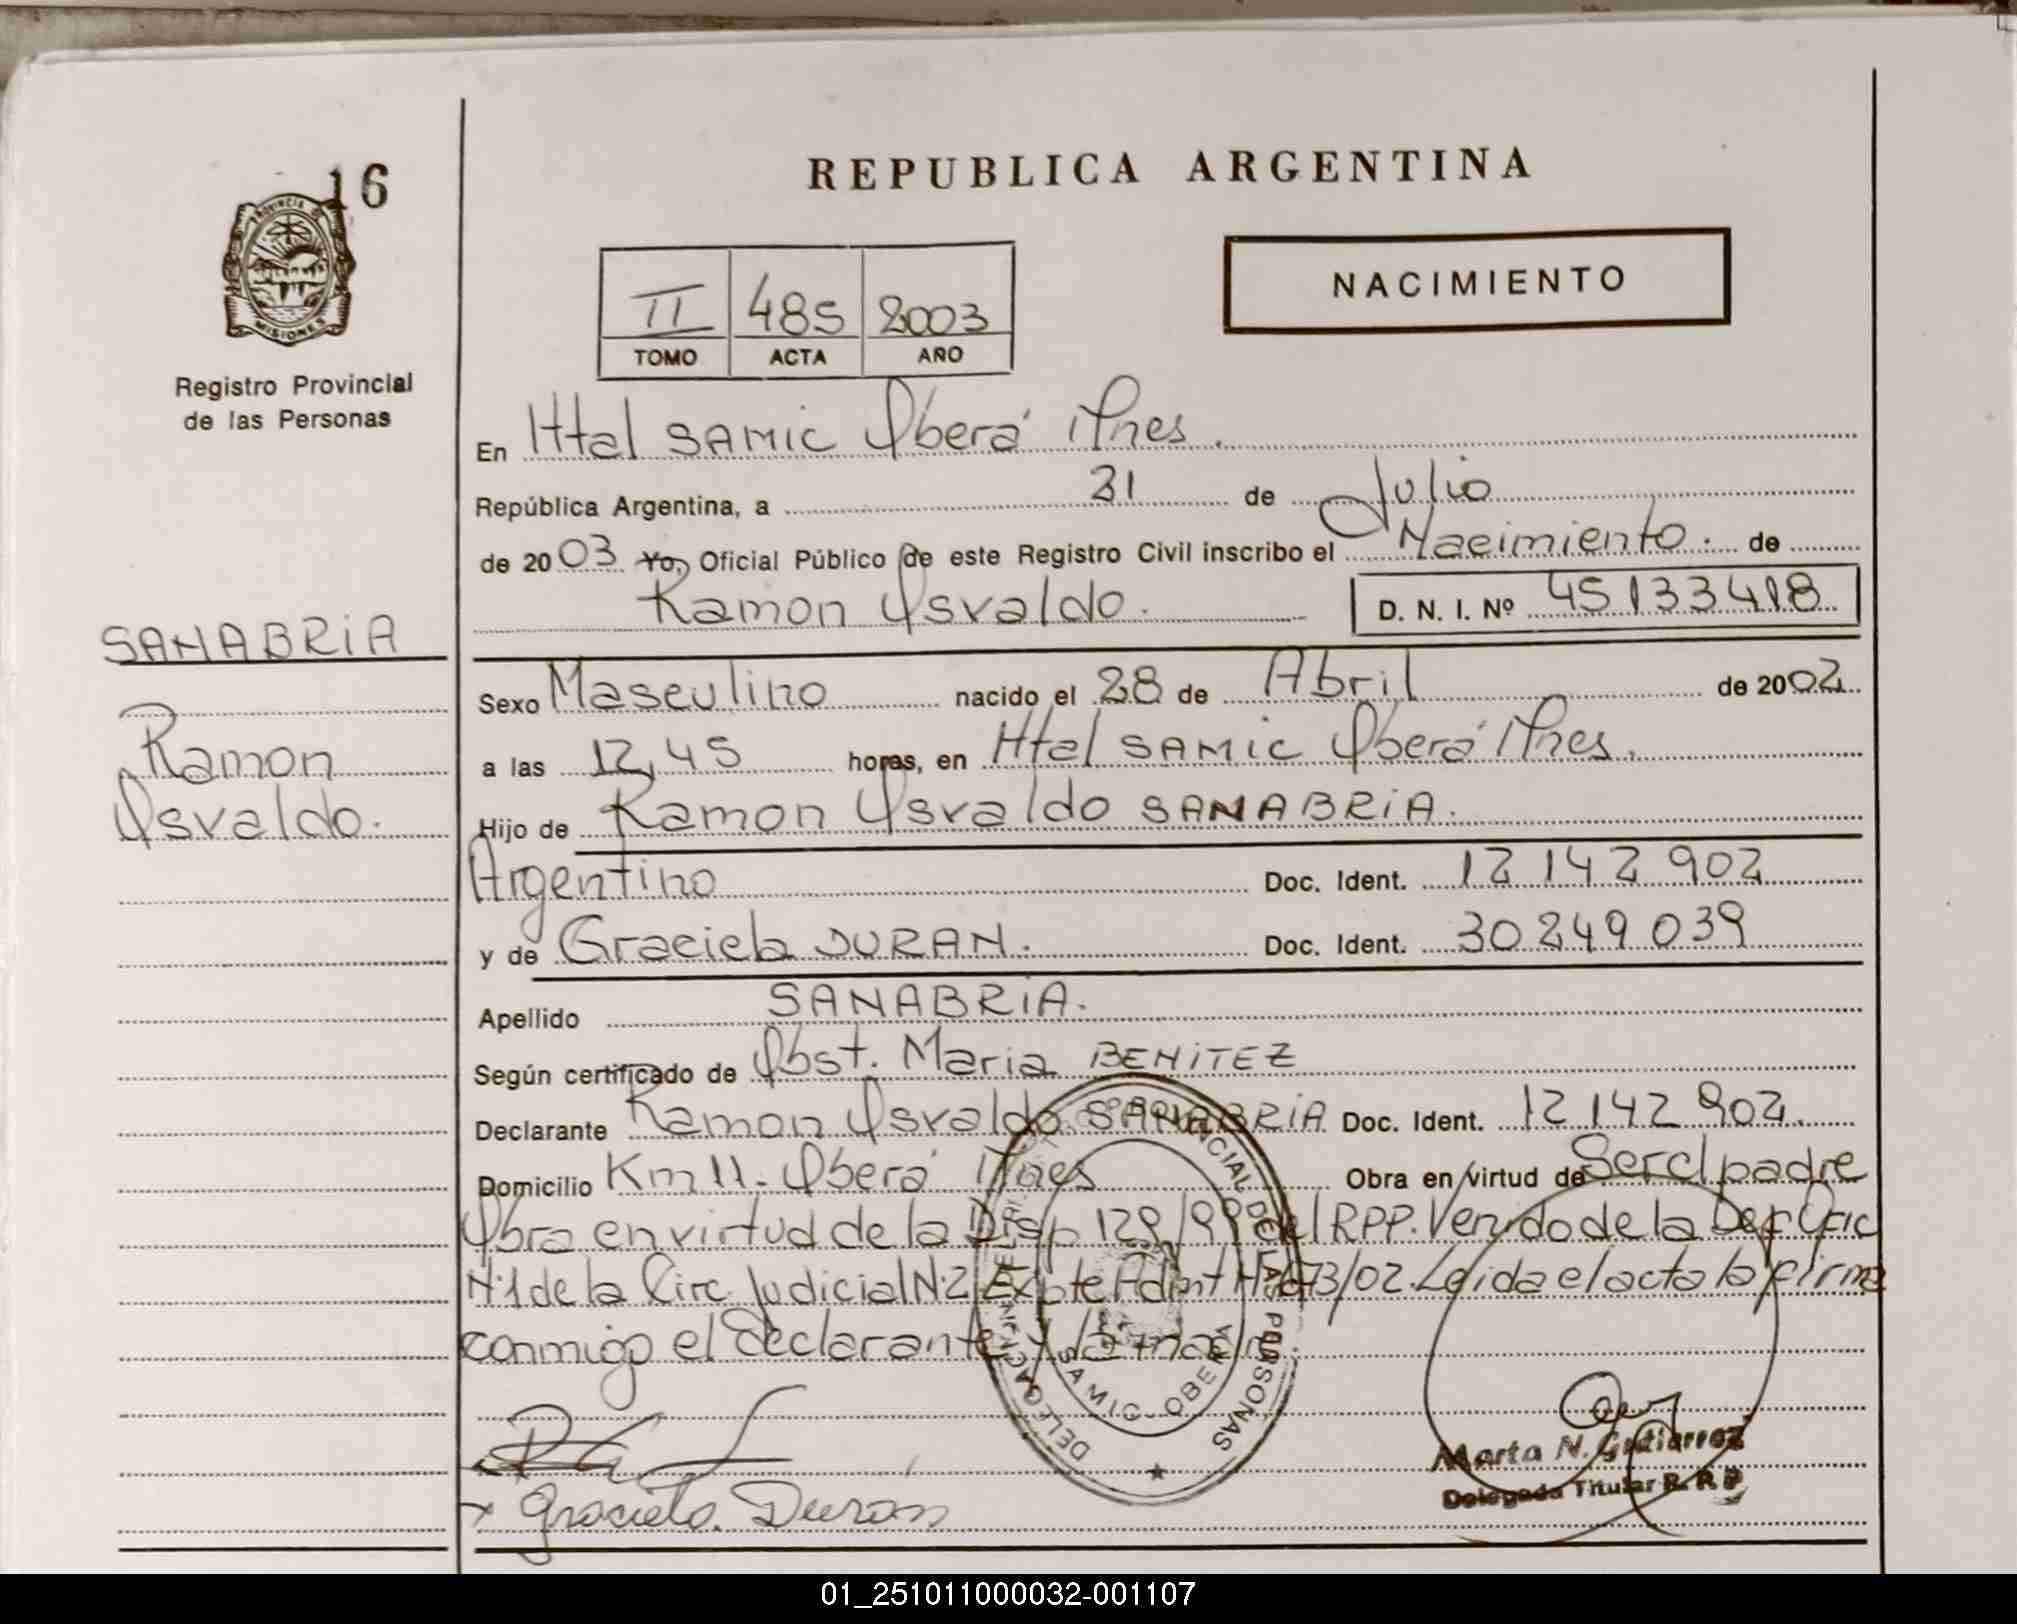 16
PROVINCIA DE
MISIONES
Registro Provincial
de las Personas
REPUBLICA ARGENTINA
NACIMIENTO
II 485 2003
TOMO ACTA AÑO
En Htal SAMIC Oberá Mnes.
República Argentina, a 31 de Julio
de 2003 Yo, Oficial Público de este Registro Civil inscribo el Nacimiento. de
Ramon Osvaldo. D. N. I. Nº 45133418
SANABRIA
Sexo Masculino nacido el 28 de Abril de 2002
Ramon
Osvaldo.
a las 12,45 horas, en Htal SAMIC Oberá Mnes.
Hijo de Ramon Osvaldo SANABRIA.
Argentino Doc. Ident. 12 142 902
y de Graciela DURAN. Doc. Ident. 30 249 039
Apellido SANABRIA.
Según certificado de Obst. Maria BENITEZ
Declarante Ramon Osvaldo SANABRIA Doc. Ident. 12 142 902.
Domicilio Km 11. Oberá Mnes Obra en virtud de Ser el padre
Obra en virtud de la Disp 129/99 del RPP. Venido de la Def Ofic
Nº1 de la Circ. Judicial Nº2 Expte Admt Nº 673/02. Leida el acta la firma
conmigo el declarante y la madre.
DELEGACION
PROVINCIAL DE LAS PERSONAS
SAMIC - OBERA
Graciela. Duran
Marta N. Gutierrez
Delegada Titular R. P. P
01_251011000032-001107